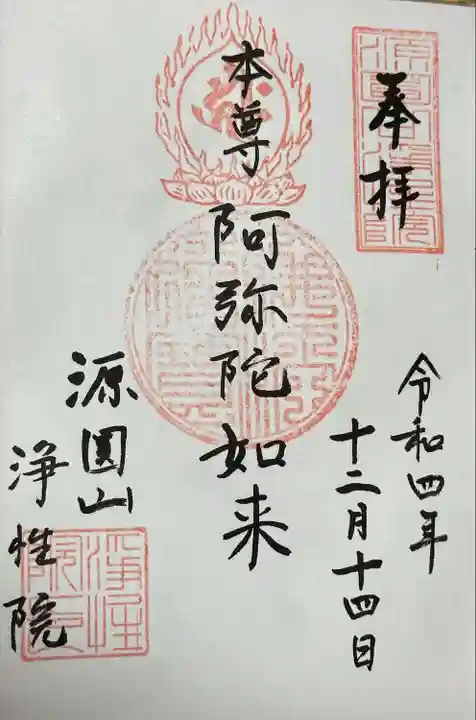 奉拝
令和四年
十二月十四日
本尊
阿弥陀如来
源圓山
浄性院